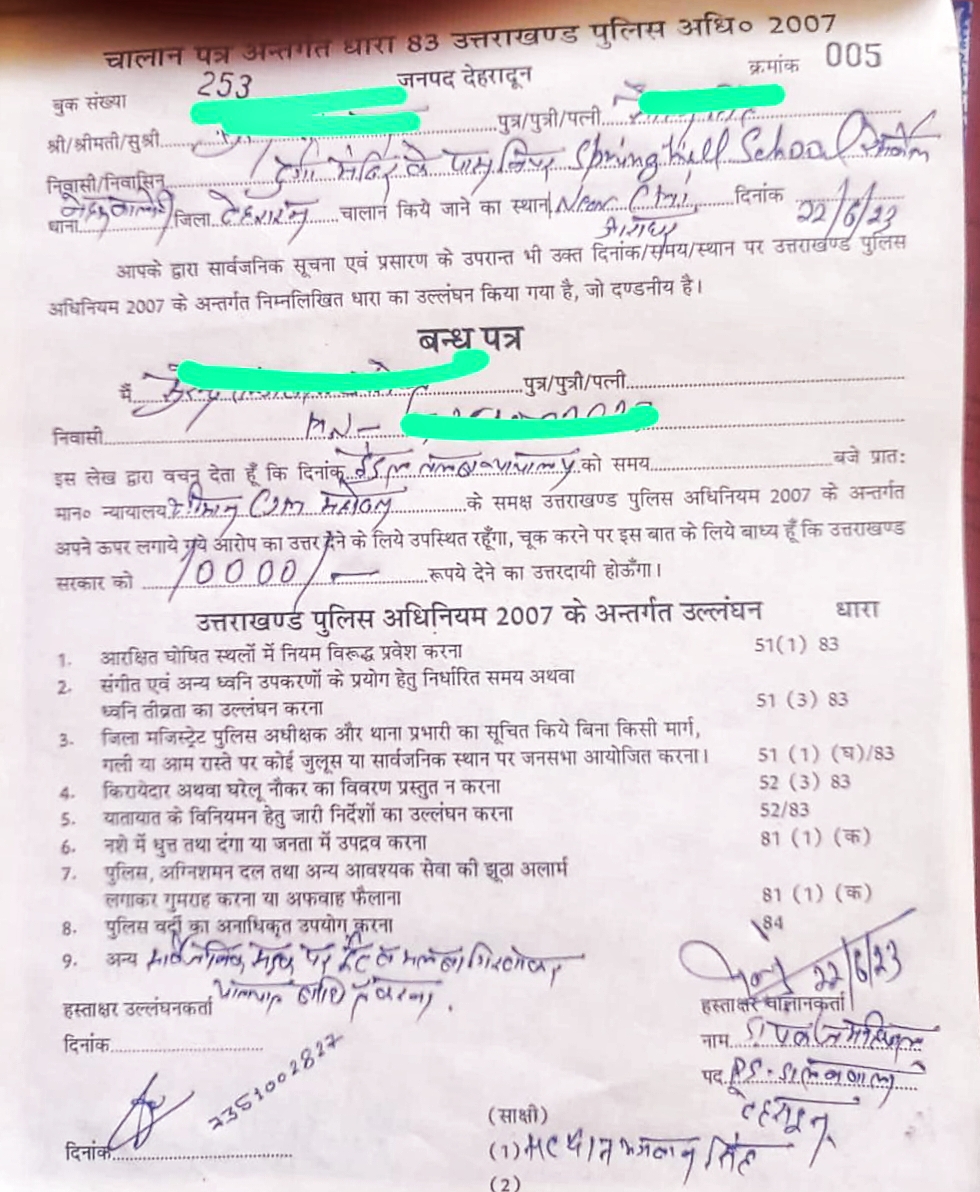 चालान पत्र अन्तर्गत धारा 83 उत्तराखण्ड पुलिस अधि० 2007
बुक संख्या 253 जनपद देहरादून क्रमांक 005
श्री/श्रीमती/सुश्री पुत्र/पुत्री/पत्नी
निवासी/निवासिन दुर्गा मंदिर के पास निपर Spring Hill School
थाना जिला देहरादून चालान किये जाने का स्थान Near CMI दिनांक 22/6/23
आराघर
आपके द्वारा सार्वजनिक सूचना एवं प्रसारण के उपरान्त भी उक्त दिनांक/समय/स्थान पर उत्तराखण्ड पुलिस
अधिनियम 2007 के अन्तर्गत निम्नलिखित धारा का उल्लंघन किया गया है, जो दण्डनीय है।
बन्ध पत्र
मैं पुत्र/पुत्री/पत्नी
निवासी MN-
इस लेख द्वारा वचन देता हूँ कि दिनांक को समय बजे प्रातः
मान० न्यायालय श्रीमान CJM महोदय के समक्ष उत्तराखण्ड पुलिस अधिनियम 2007 के अन्तर्गत
अपने ऊपर लगाये गये आरोप का उत्तर देने के लिये उपस्थित रहूँगा, चूक करने पर इस बात के लिये बाध्य हूँ कि उत्तराखण्ड
सरकार को 10000/- रूपये देने का उत्तरदायी होऊँगा।
उत्तराखण्ड पुलिस अधिनियम 2007 के अन्तर्गत उल्लंघन धारा
1. आरक्षित घोषित स्थलों में नियम विरूद्ध प्रवेश करना 51(1) 83
2. संगीत एवं अन्य ध्वनि उपकरणों के प्रयोग हेतु निर्धारित समय अथवा
ध्वनि तीव्रता का उल्लंघन करना 51 (3) 83
3. जिला मजिस्ट्रेट पुलिस अधीक्षक और थाना प्रभारी का सूचित किये बिना किसी मार्ग,
गली या आम रास्ते पर कोई जुलूस या सार्वजनिक स्थान पर जनसभा आयोजित करना। 51 (1) (घ)/83
4. किरायेदार अथवा घरेलू नौकर का विवरण प्रस्तुत न करना 52 (3) 83
5. यातायात के विनियमन हेतु जारी निर्देशों का उल्लंघन करना 52/83
6. नशे में धुत्त तथा दंगा या जनता में उपद्रव करना 81 (1) (क)
7. पुलिस, अग्निशमन दल तथा अन्य आवश्यक सेवा की झूठा अलार्म
लगाकर गुमराह करना या अफवाह फैलाना 81 (1) (क)
8. पुलिस वर्दी का अनाधिकृत उपयोग करना 84
9. अन्य सार्वजनिक सड़क पर ईंट व मलबा गिराकर
यातायात बाधित करना। 22/6/23
हस्ताक्षर उल्लंघनकर्ता हस्ताक्षर चालानकर्ता
दिनांक नाम
2351002827 पद PS.
देहरादून
(साक्षी)
दिनांक (1) सिंह
(2)